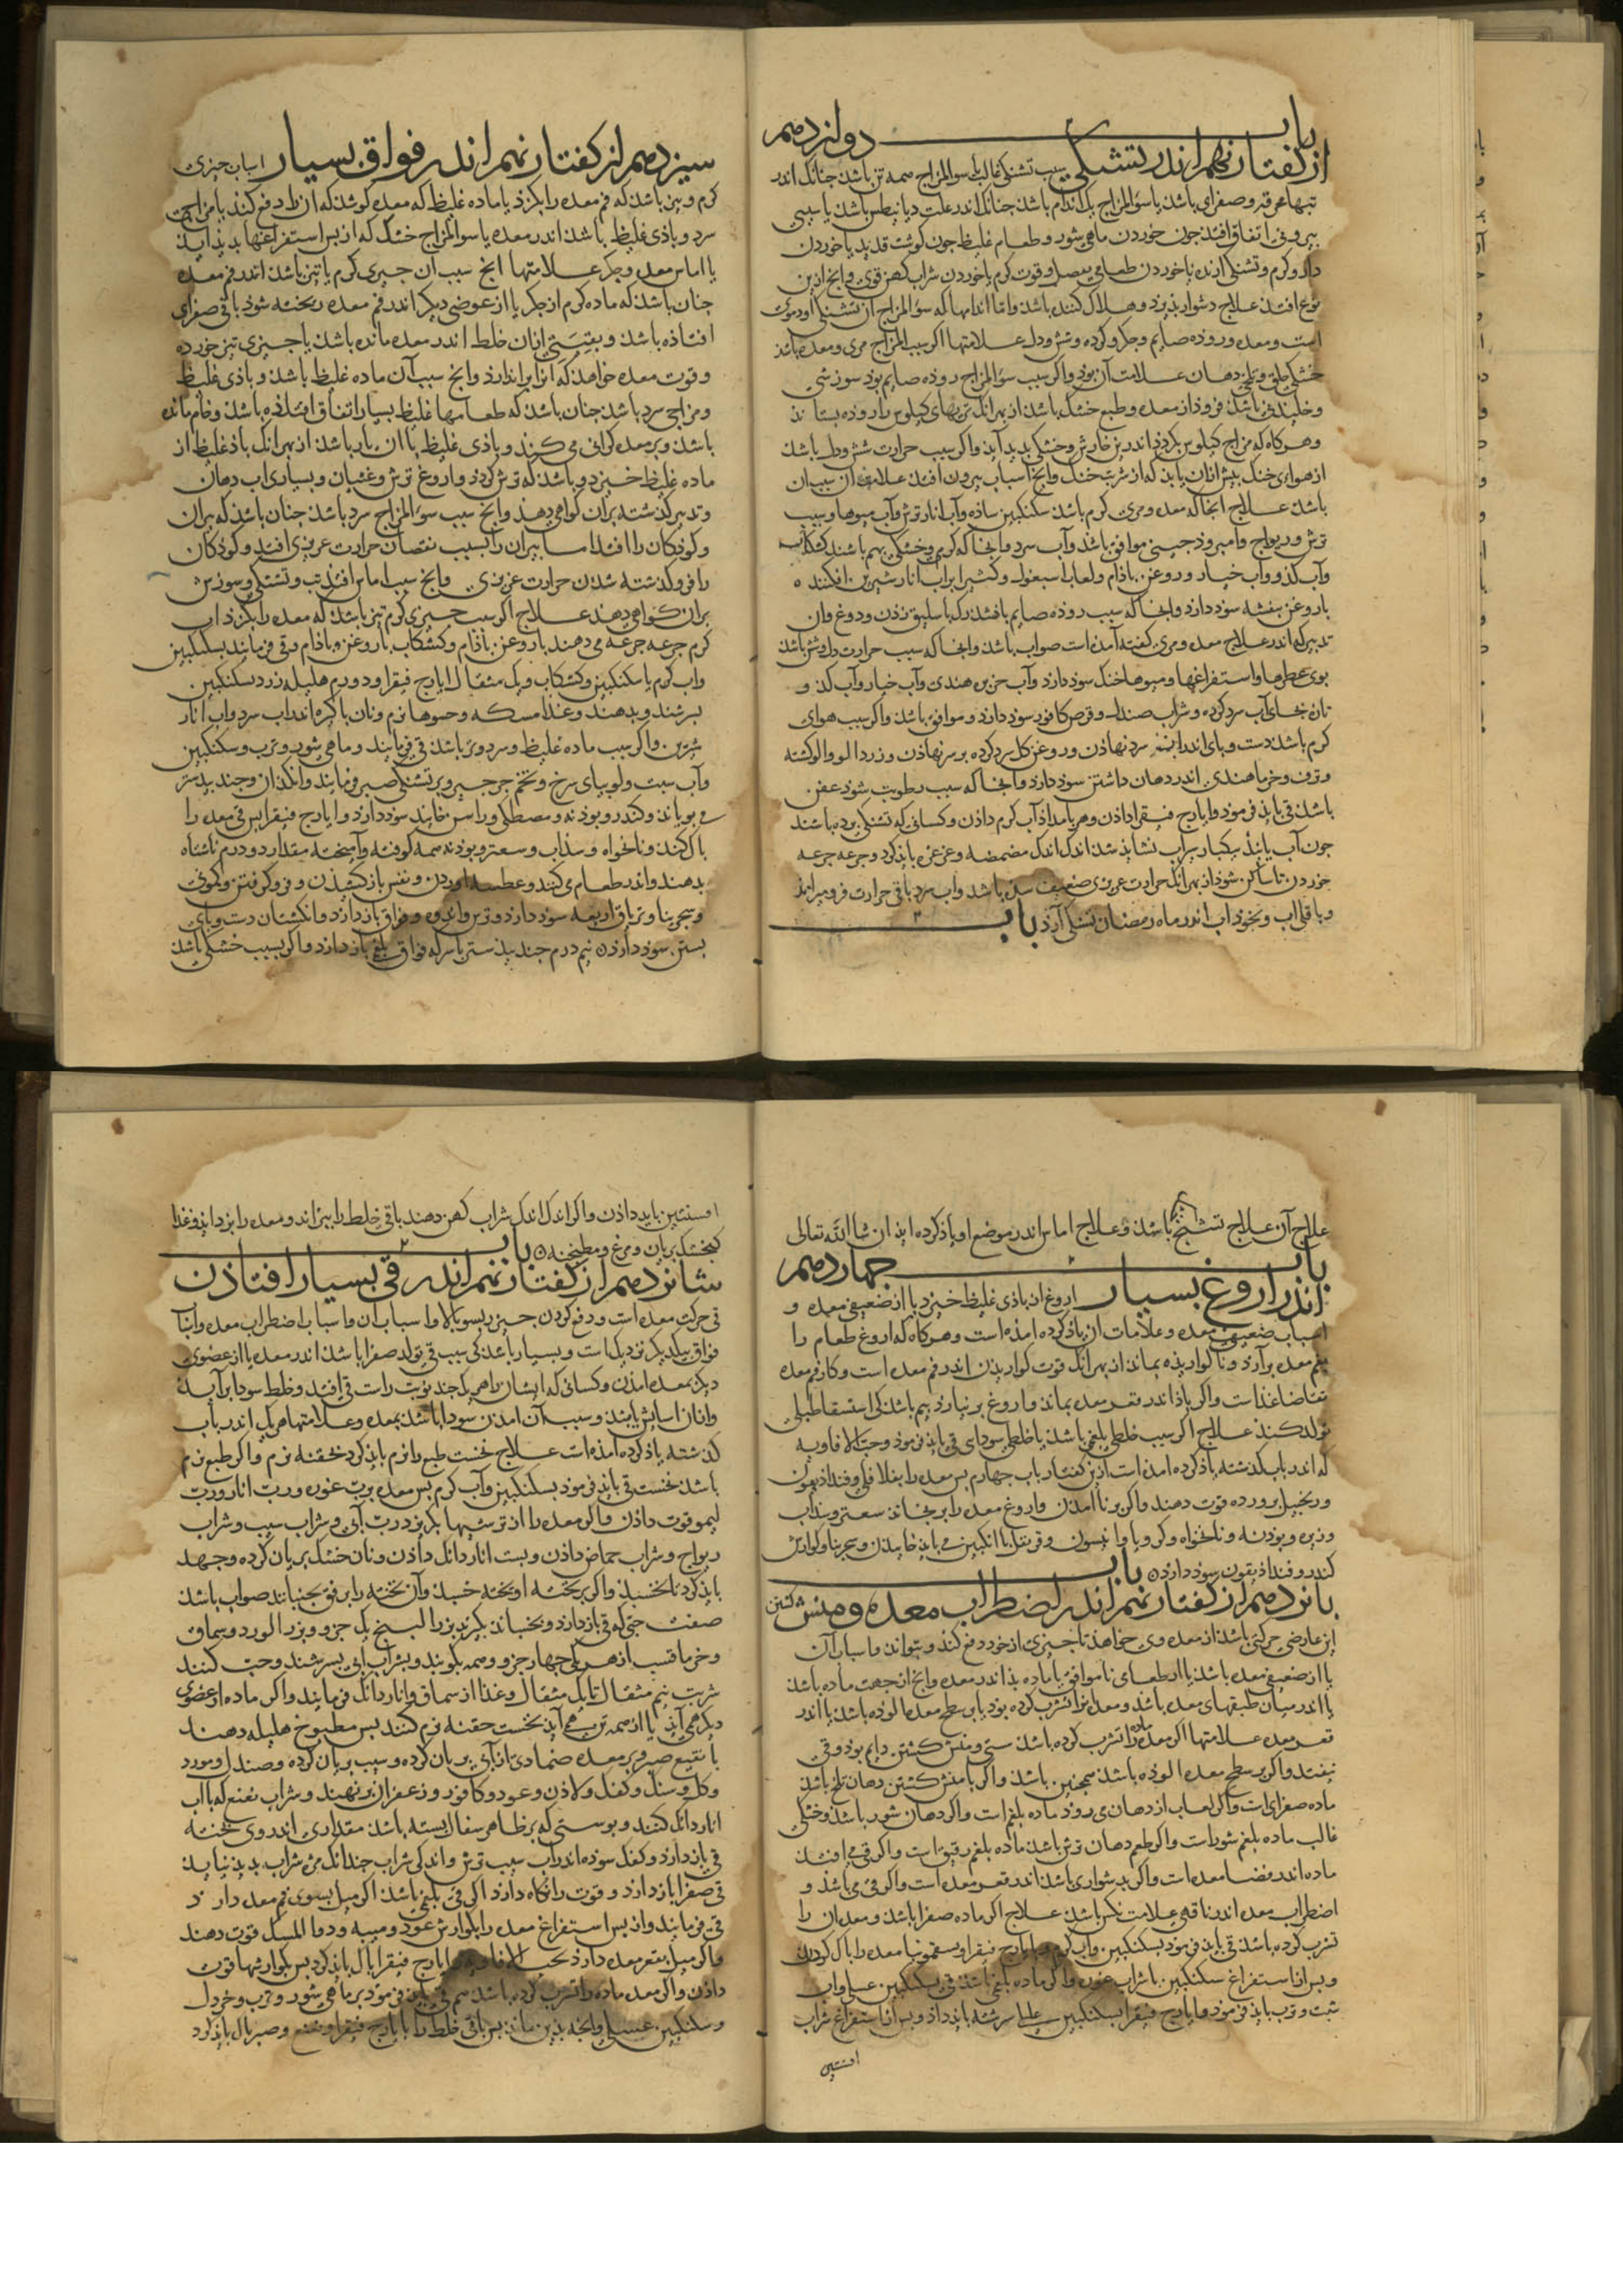 باب دوازدهم
از گفتار نهم اندر تشنگی سبب تشنگی غالب یا سوالمزاج همه تن باشد چنانک اندر
تبهاء محرقه و صفرای باشد یا سوء المزاج یک اندام باشد چنانک اندر علت دیانیطس باشد یا سببی
بیرونی اتفاق افتد چون خوردن ماهی شور و طعام غلیظ چون کوشت قدید یا خوردن
داروء کرم و تشنکی ارنده یا خوردن طعامی بعسل و قوت کرم یا خوردن شراب کهن قوی وانج ازین
نوع افتد علاج دشوار پذیرد و هلاک کننده باشد واما اندامها که سوء المزاج ان تشنکی اورد مری
است و معده و روده صایم و جکر و کرده و شش و دل علامتها اکر سبب المزاج مری و معده باشد
خشکی حلق و تلخی دهان علامت آن بود واکر سبب سوء المزاج روده صایم بود سوزشی
و خلیدنی باشد فروذ از معده و طبع خشک باشد از بهر انک تریهای کیلوس را روده بستاند
وهرکاه که مزاج کیلوس بکردد اندر تن خارش و خشکی بدید آید واکر سبب حرارت شش و دل باشد
از هواء خنک بیش ازان یابد که از شربت خنک وانج اسباب بیرون افتد علامت ان سبب ان
باشد علاج انجا که معده و مری کرم باشد سکنکبین ساده و آب انار ترش و آب میوها و سیب
ترش و ریواج وامرود چینی موافق باشد و آب سرد وانجا که کرمی و خشکی بهم باشند کشکاب
و آب کدو و آب خیار و روغن باذام و لعاب اسبغول و کشیرا بر آب انار شیرین افکنده
با روغن بنفشه سود دارد وانجا که سبب روده صایم باشد رک باسلیق زدن و دوغ وان
تدبیر که اندر علاج معده و مری کفته آمده است صواب باشد وانجا که سبب حرارت دل و شش باشد
بوی عطرها و استفراغها و میوهاء خنک سود دارد و آب خربزه هندی و آب خیار و آب کدو و
نان بخای آب سرد کرده و شراب صندل و قرص کافور سود دارد و موافق باشد واکر سبب هوای
کرم باشد دست و پای اندر آب سرد نهاذن و روغن کل سرد کرده بر سر نهاذن و زردالو و الو کشته
و ترف و خرماء هندی اندر دهان داشتن سود دارد وانجا که سبب رطوبت شود عفن
باشد قی باید فرمود وایارج فیقرا داذن و هر بامداد آب کرم داذن و کسانی که تشنکی برده باشند
چون آب یابند بیکبار سراب نشاید شد اندک اندک مضمضه و غرغره باید کرد و جرعه جرعه
خوردن تا ساکن شود از بهر انک حرارت غریزی ضعیف شده باشد و اب سرد باقی حرارت فرو میراند
و باقلی اب و نخود اب اندر ماه رمضان تشنکی آرد باب
سیزدهم از کفتار نهم اندر فواق بسیار اسبان چیزی
کرم و تیز باشد که فم معده را بکزد یا ماده غلیظ که معده کوشد که ان را دفع کند یا مزاجی
سرد و باذی غلیظ باشد اندر معده یا سوالمزاج خشک که از پس استفراغها بدید اید
یا اماس معده و جکر علامتها انج سبب ان چیزی کرم یا تیز باشد اندر فم معده
چنان باشد که ماده کرم از جکر یا از عوضی دیکر اندر فم معده ریخته شود یا قی صفرای
افتاذه باشد و بقیتی ازان خلط اندر معده مانده باشد یا چیزی تیز خورده
و قوت معده خواهد که انرا براندازد وانج سبب آن ماده غلیظ باشد و باذی غلیظ
ومزاجی سرد باشد چنان باشد که طعامهاء غلیظ بسیار اتفاق افتاده باشد و خام مانده
باشد و بر معده کرانی می کند و باذی غلیظ با ان یار باشد از بهر انک باذ غلیظ از
ماده غلیظ خیزد و باشد که ترش کردد و اروغ ترش و غثیان و بسیاری اب دهان
و تدبیر کذشته بران کواهی دهد وانج سبب سوء المزاج سرد باشد چنان باشد که پیران
و کوذکان را افتد اما پیران را بسبب نقصان حرارت غریزی افتد و کوذکان
را فرو کذشته شدن حرارت غریزی وانج سبب اماس افتد تب و تشنکی و سوزش
بران کواهی دهند علاج اکر سبب چیزی کرم تیز باشد که معده را بکزد اب
کرم جرعه جرعه می دهند با روغن باذام و کشکاب با روغن باذام و قی فرمایند بسکنکبین
و اب کرم یا سکنکبین و کشکاب و یک مثقال ایارج فیقرا و دو درم هلیله زرد بسکنکبین
بسرشند و بدهند و غذا مسکه و حسوهاء نرم و نان پاکیزه اند اب سرد و اب انار
شیرین واکر سبب ماده غلیظ و سرد و تر باشد قی فرمایند و ماهی شور و ترب و سکنکبین
و آب سبت و لوبیای سرخ و تخم جرجیر و بر تشنکی صبر فرمایند و انکذان و جندبیدستر
می بویانند و کندر و بوذنه و مصطکی و راسن خایند سود دارد و ایارج فیقرا بس قی معده را
پاک کند و نانخواه و سذاب و سعتر و بوذنه همه کوفته و آمیخته مقدار دو درم ناشتاه
بدهند و اندر طعام می کنند و عطسه اوردن و نفس باز کشیدن و فرو کرفتن و کمونی
و سجرینا و تریاق اربعه سود دارد و ترس و اندوه و فواق باز دارد و انکشتان دست و پای
بستن سود دارد نیم درم جندبیدستر با سرکه فواق بلغم باز دارد و اکر بسبب خشکی باشد
علاج آن علاج تشنج باشد و علاج اماس اندر موضع او یاذ کرده اید ان شا الله تعالی
باب چهاردهم
اندر اروغ بسیار اروغ ان باذی غلیظ خیزد یا از ضعیفی معده و
اسباب ضعیفی معده و علامات ان یاذ کرده امده است وهرکاه که اروغ طعام را
بفم معده برآرد و ناکواریذه بماند از بهر انک قوت کواریذن اندر فم معده است و کار فم معده
تقاضاء غذاست واکر باذ اندر قعر معده بماند و اروغ بر نیارد بیم باشد کی استسقاء طبلی
تولد کند علاج اکر سبب خلطی بلغمی باشد یا خلطی سودای قی باید فرمود و حب الافاویه
که اندر باب کذشته یاذ کرده امده است ازین کفتار باب چهارم بس معده را بفلافلی و فنداذیقون
و زنجبیل پرورده قوت دهند واکر برنا امدن و اروغ معده را برنجاند سعتر و سذاب
و زیره و بوذنه و نانخواه و کرویا و انیسون و قرنفل با انکبین می باید خاییدن و سجرینا و کوارش
کندر و فنداذیقون سود دارد باب
پانزدهم از کفتار نهم اندر اضطراب معده و منش کشتن
این عارضی حرکتی باشد از معده وی خواهد تا چیزی از خود دفع کند و نتواند و اسباب آن
یا از ضعیفی معده باشد یا از طعامی ناموافق یا ماده بذ اندر معده وانج از جهت ماده باشد
یا اندر میان طبقهای معده باشد و معده مرانرا تشرب کرده بود یا بر سطح معده الوده باشد یا اندر
قعر معده علامتها اکر معده ماده را تشرب کرده باشد سستی و منش کشتن دایم بود و قی
نیفتد واکر بر سطح معده الوده باشد همچنین باشد واکر با منش کشتن دهان تلخ باشد
ماده صفرای است واکر لعاب از دهان می رود ماده بلغم است واکر دهان شور باشد و خشکی
غالب ماده بلغم شور است واکر طعم دهان ترش باشد ماده بلغم رقیق است واکر قی می افتد
ماده اندر فضاء معده است واکر بدشواری باشد اندر قعر معده است واکر قی می باشد و
اضطراب معده اندر ناقهی علامت نکس باشد علاج اکر ماده صفرا باشد و معده ان را
تشرب کرده باشد قی باید فرمود بسکنکبین و آب کرم و بایارج فیقرا و سقمونیا معده را پاک کردن
و بس از استفراغ سکنکبین با شراب غوره واکر ماده بلغمی باشد قی بسکنکبین عسلی و اب
شبت و ترب باید فرمود و ایارج فیقرا بسکنکبین عسلی سرشته باید داد و بس از استفراغ شراب
افسنتین
افسنتین باید داذن واکر اندک اندک شراب کهن دهند باقی خلط را بپزاند و معده را بزداید و غذا
کبخشک بریان و مرغ و مطجنه باب
شانزدهم از کفتار نهم اندر قی بسیار افتاذن
قی حرکت معده است و دفع کردن چیزی بسوی بالا و اسباب ان و اسباب اضطراب معده و اسباب
فواق بیکدیکر نزدیک است و بسیار باشد کی سبب قی تولد صفرا باشد اندر معده یا از عضوی
دیکر بمعده امدن و کسانی که ایشان را هر یک چند نوبت راست قی افتد و خلط سودا برآید
وازان اسایش یابند و سبب آن امدن سودا باشد بمعده و علامتها هر یک اندر باب
کذشته یاذ کرده امده است علاج نخست طبع را نرم باید کرد بحقنه نرم واکر طبع نرم
باشد نخست قی باید فرمود بسکنکبین و آب کرم بس معده برب غوره و رب انار و رب
لیمو قوت داذن واکر معده را از ترشیها بکریزد رب آبی و شراب سیب و شراب
ریواج و شراب حماض داذن و بست اناردانک داذن و نان خشک بریان کرده و جهد
باید کرد تا بخسبد واکر بر تخته اویخته خسبد وآن تخته را برفق بجنبانند صواب باشد
صفت حبی که قی باز دارد و بخساند بکیرند بزر البنج یک جزو و بزر الورد و سماق
و خرماء قسب از هر یکی چهار جزو و همه بکوبند و بشراب آبی بسرشند و حب کنند
شربت نیم مثقال تا یک مثقال و غذا از سماق و اناردانک فرمایند واکر ماده از عضوی
دیکر همی آید یا از همه تن همی آید نخست حقنه نرم کنند بس مطبوخ هلیله دهند
یا نقیع صبر و بر معده ضمادی از آبی بریان کرده و سیب بریان کرده و صندل و مورد
و کل و سنبل و کعک و لاذن و عود و کافور و زعفران برنهند و شراب نعنع که با اب
اناردانک کنند و بوستی که بر ظاهر سفال بسته باشد مقداری اندر وی سخته
قی باز دارد و کعک سوده اندر آب سیب ترش و اندکی شراب چندانک مزه شراب بدید نیاید
قی صفرا باز دارد و قوت را نکاه دارد اکر قی بلغمی باشد اکر میل بسوی فم معده دارد
قی فرمایند و از بس استفراغ معده را بکوارش عود و میبه و دواء المسک قوت دهند
واکر میل بقعر معده دارد بحب الافاویه و ایارج فیقرا پاک باید کرد بس بکوارشها قوت
داذن واکر معده ماده را تشرب کرده باشد هم قی باید فرمود بر ماهی شور و ترب و خردل
و سکنکبین عسلی وانچه بدین ماند بس باقی خلط را با یارج فیقرا و نعنع و صبر پاک باید کرد